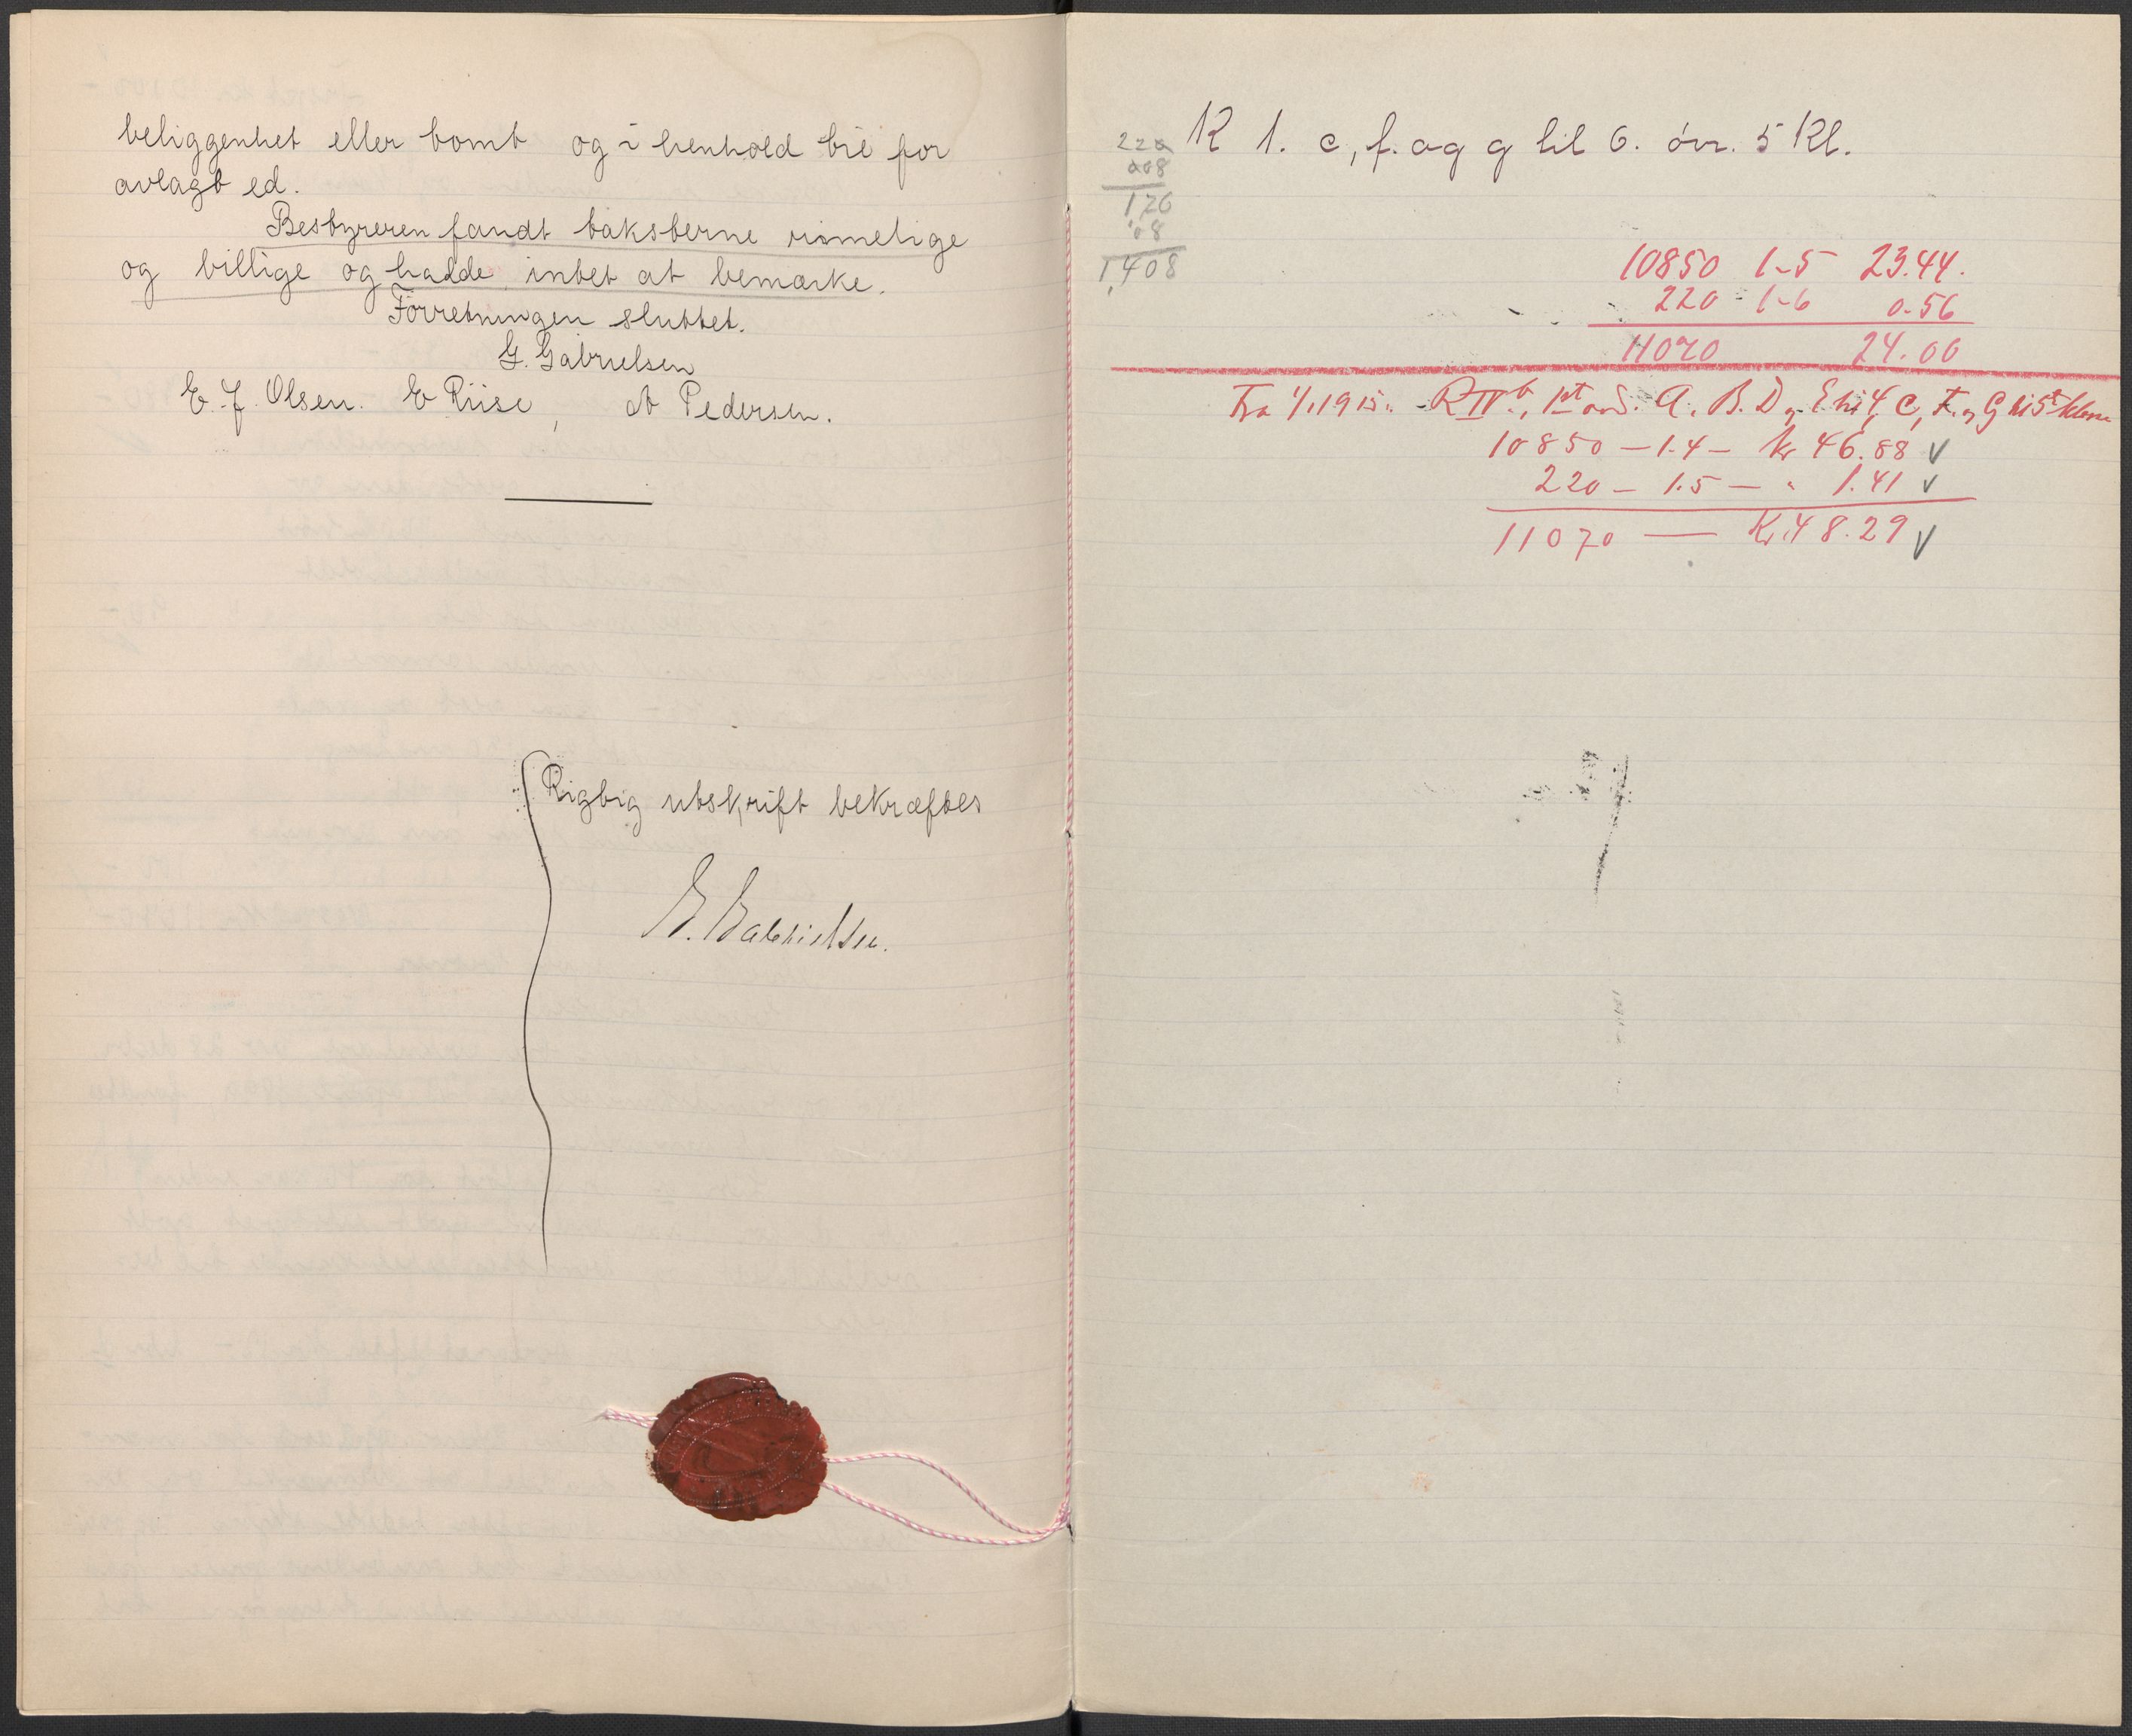 beliggenhet eller tomt og i henhold til før
avlagt ed.
Bestyreren fandt taksterne rimelige
og billige og hadde intet at bemærke.
Forretningen sluttet.
G. Gabrielsen
E. J. Olsen. E Riise, A Pedersen.
Rigtig utskrift bekræftes
G. Gabrielsen.
220
008
176
1,408
K 1. c, f. og g til 6. övr. 5 Kl.
10850 1-5 23.44.
220 - 1-6 0.56
11070 24.00
Fra 1/1 1915. R IV b, 1st A. B. D og E til 4, C, F. og G til 5te klasse
10850 - 1.4 - kr 46.88 V
220 - 1.5 - " 1.41 v
11070 — Kr 48.29 V